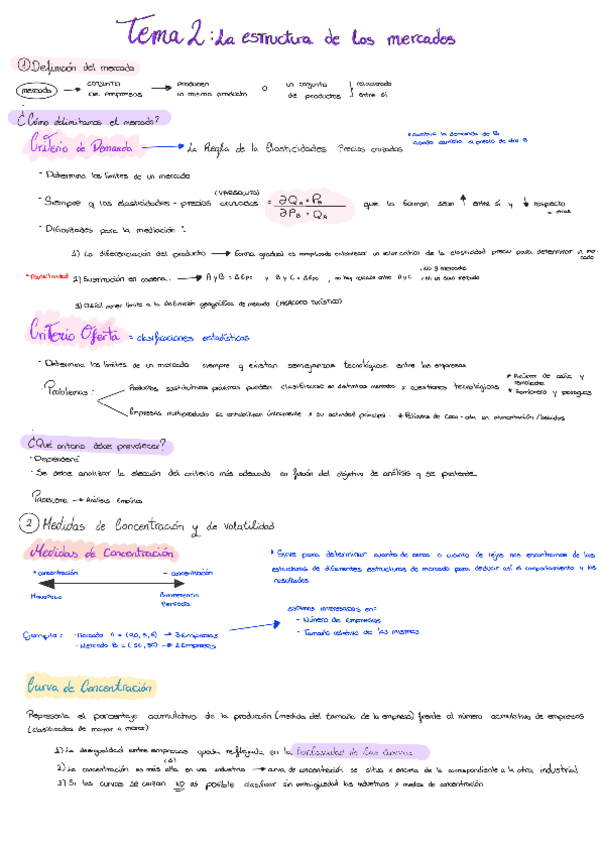 Tema 2: La estructura de los mercados
① Definición del mercado
mercado → conjunto de empresas → producen un mismo producto o un conjunto de productos relacionado entre sí
¿Cómo delimitamos el mercado?
Criterio de Demanda → La Regla de la Elasticidades Precios cruzadas
- Determina los límites de un mercado
- Siempre q las elasticidades - precios cruzadas = ∂QA · PB / ∂PB · QA que la forman sean ↑ entre sí y ↓ respecto
(V.ABSOLUTO)
- Dificultades para la mediación:
1) La diferenciación del producto → forma gradual es complicado establecer un valor crítico de la elasticidad precio para determinar
2) Sustitución en cadena.. → A y B = y B y C =
3) Difícil poner límite a la definición geográfica de mercado (MERCADO TURÍSTICO)
Criterio Oferta = clasificaciones estadísticas
- Determina los límites de un mercado siempre q existan semejanzas tecnológicas entre las empresas
Problemas:
Productos sustitutivos próximos pueden clasificarse en distintos mercados x cuestiones tecnológicas
* Azúcar de caña y remolacha
* Sombrero y paraguas
Empresas multiproducto se contabilizan únicamente x su actividad principal.
¿Qué criterio debe prevalecer?
- Dependerá
- Se debe analizar la elección del criterio más adecuado en función del objetivo de análisis q se pretende.
Problema → Análisis Empírico
② Medidas de Concentración y de Volatilidad
Medidas de Concentración
* Sirve para determinar cuanto de cerca o cuanto de lejos nos encontramos de las
estructuras de diferentes estructuras de mercado para deducir así el comportamiento y los
resultados.
+ concentración
- concentración
Monopolio
Competencia Perfecta
estamos interesados en:
- Número de empresas
- Tamaño relativo de las mismas
Ejemplo: - Mercado A = → 3 Empresas
- Mercado B = (50, 50) → 2 Empresas
Curva de Concentración
Representa el porcentaje acumulativo de la producción (medida del tamaño de la empresa) frente al número acumulativo de empresas
(clasificadas de mayor a menor)
1) La desigualdad entre empresas queda reflejada en la Concavidad de las curvas
2) La concentración es más alta en una industria → curva de concentración se situa x encima de la correspondiente a la otra industrial
3) Si las curvas se cruzan NO es posible clasificar sin ambigüedad las industrias x medios de concentración.